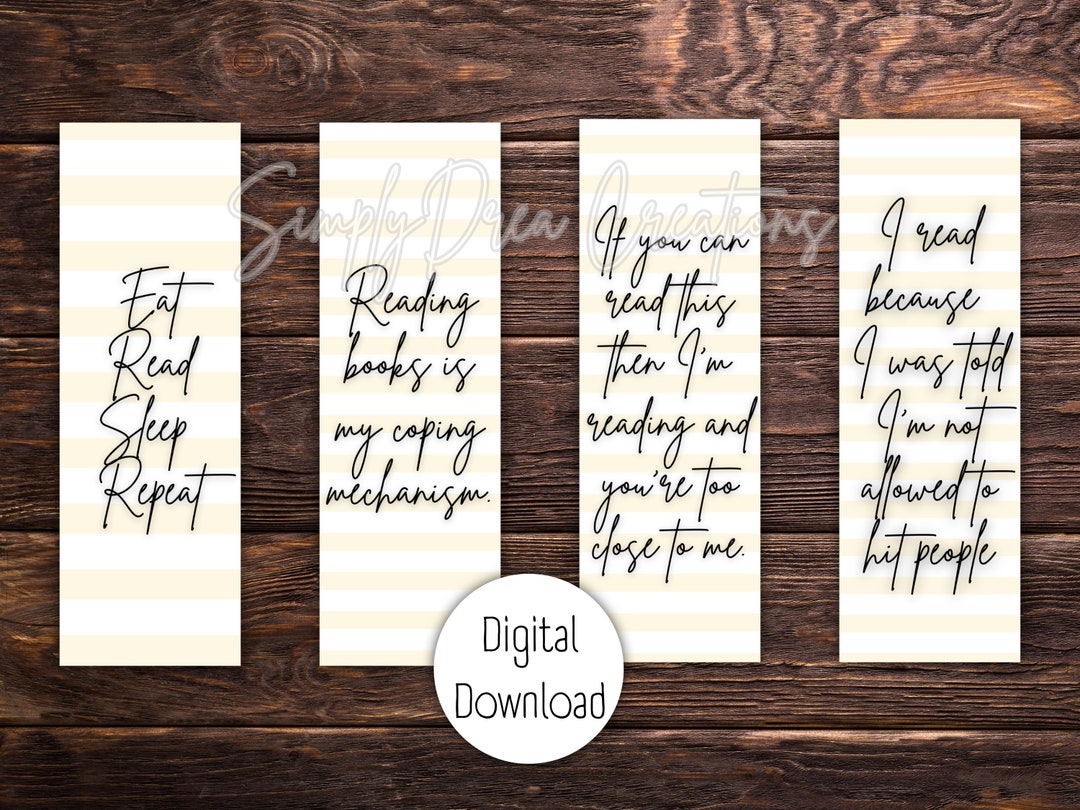 SimplyDrea Creations
Eat
Read
Sleep
Repeat
Reading
books is
my coping
mechanism.
If you can
read this
then I'm
reading and
you're too
close to me.
I read
because
I was told
I'm not
allowed to
hit people
Digital
Download